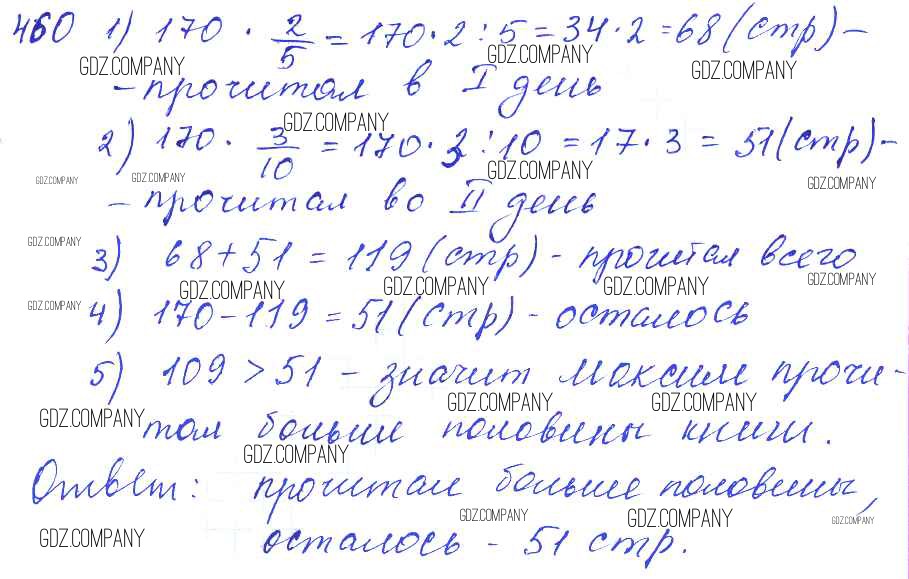 460 1) 170 · 2/5 = 170 · 2 : 5 = 34 · 2 = 68 (стр) –
GDZ.COMPANY GDZ.COMPANY GDZ.COMPANY
– прочитал в I день
GDZ.COMPANY
2) 170 · 3/10 = 170 · 3 : 10 = 17 · 3 = 51 (стр) –
GDZ.COMPANY GDZ.COMPANY GDZ.COMPANY GDZ.COMPANY
– прочитал во II день
GDZ.COMPANY
3) 68 + 51 = 119 (стр) - прочитал всего
GDZ.COMPANY GDZ.COMPANY GDZ.COMPANY GDZ.COMPANY
GDZ.COMPANY
4) 170 – 119 = 51 (стр) - осталось
5) 109 > 51 – значит Максим прочи-
GDZ.COMPANY GDZ.COMPANY GDZ.COMPANY
тал больше половины книги.
GDZ.COMPANY
Ответ: прочитал больше половины,
GDZ.COMPANY GDZ.COMPANY GDZ.COMPANY
GDZ.COMPANY
осталось - 51 стр.